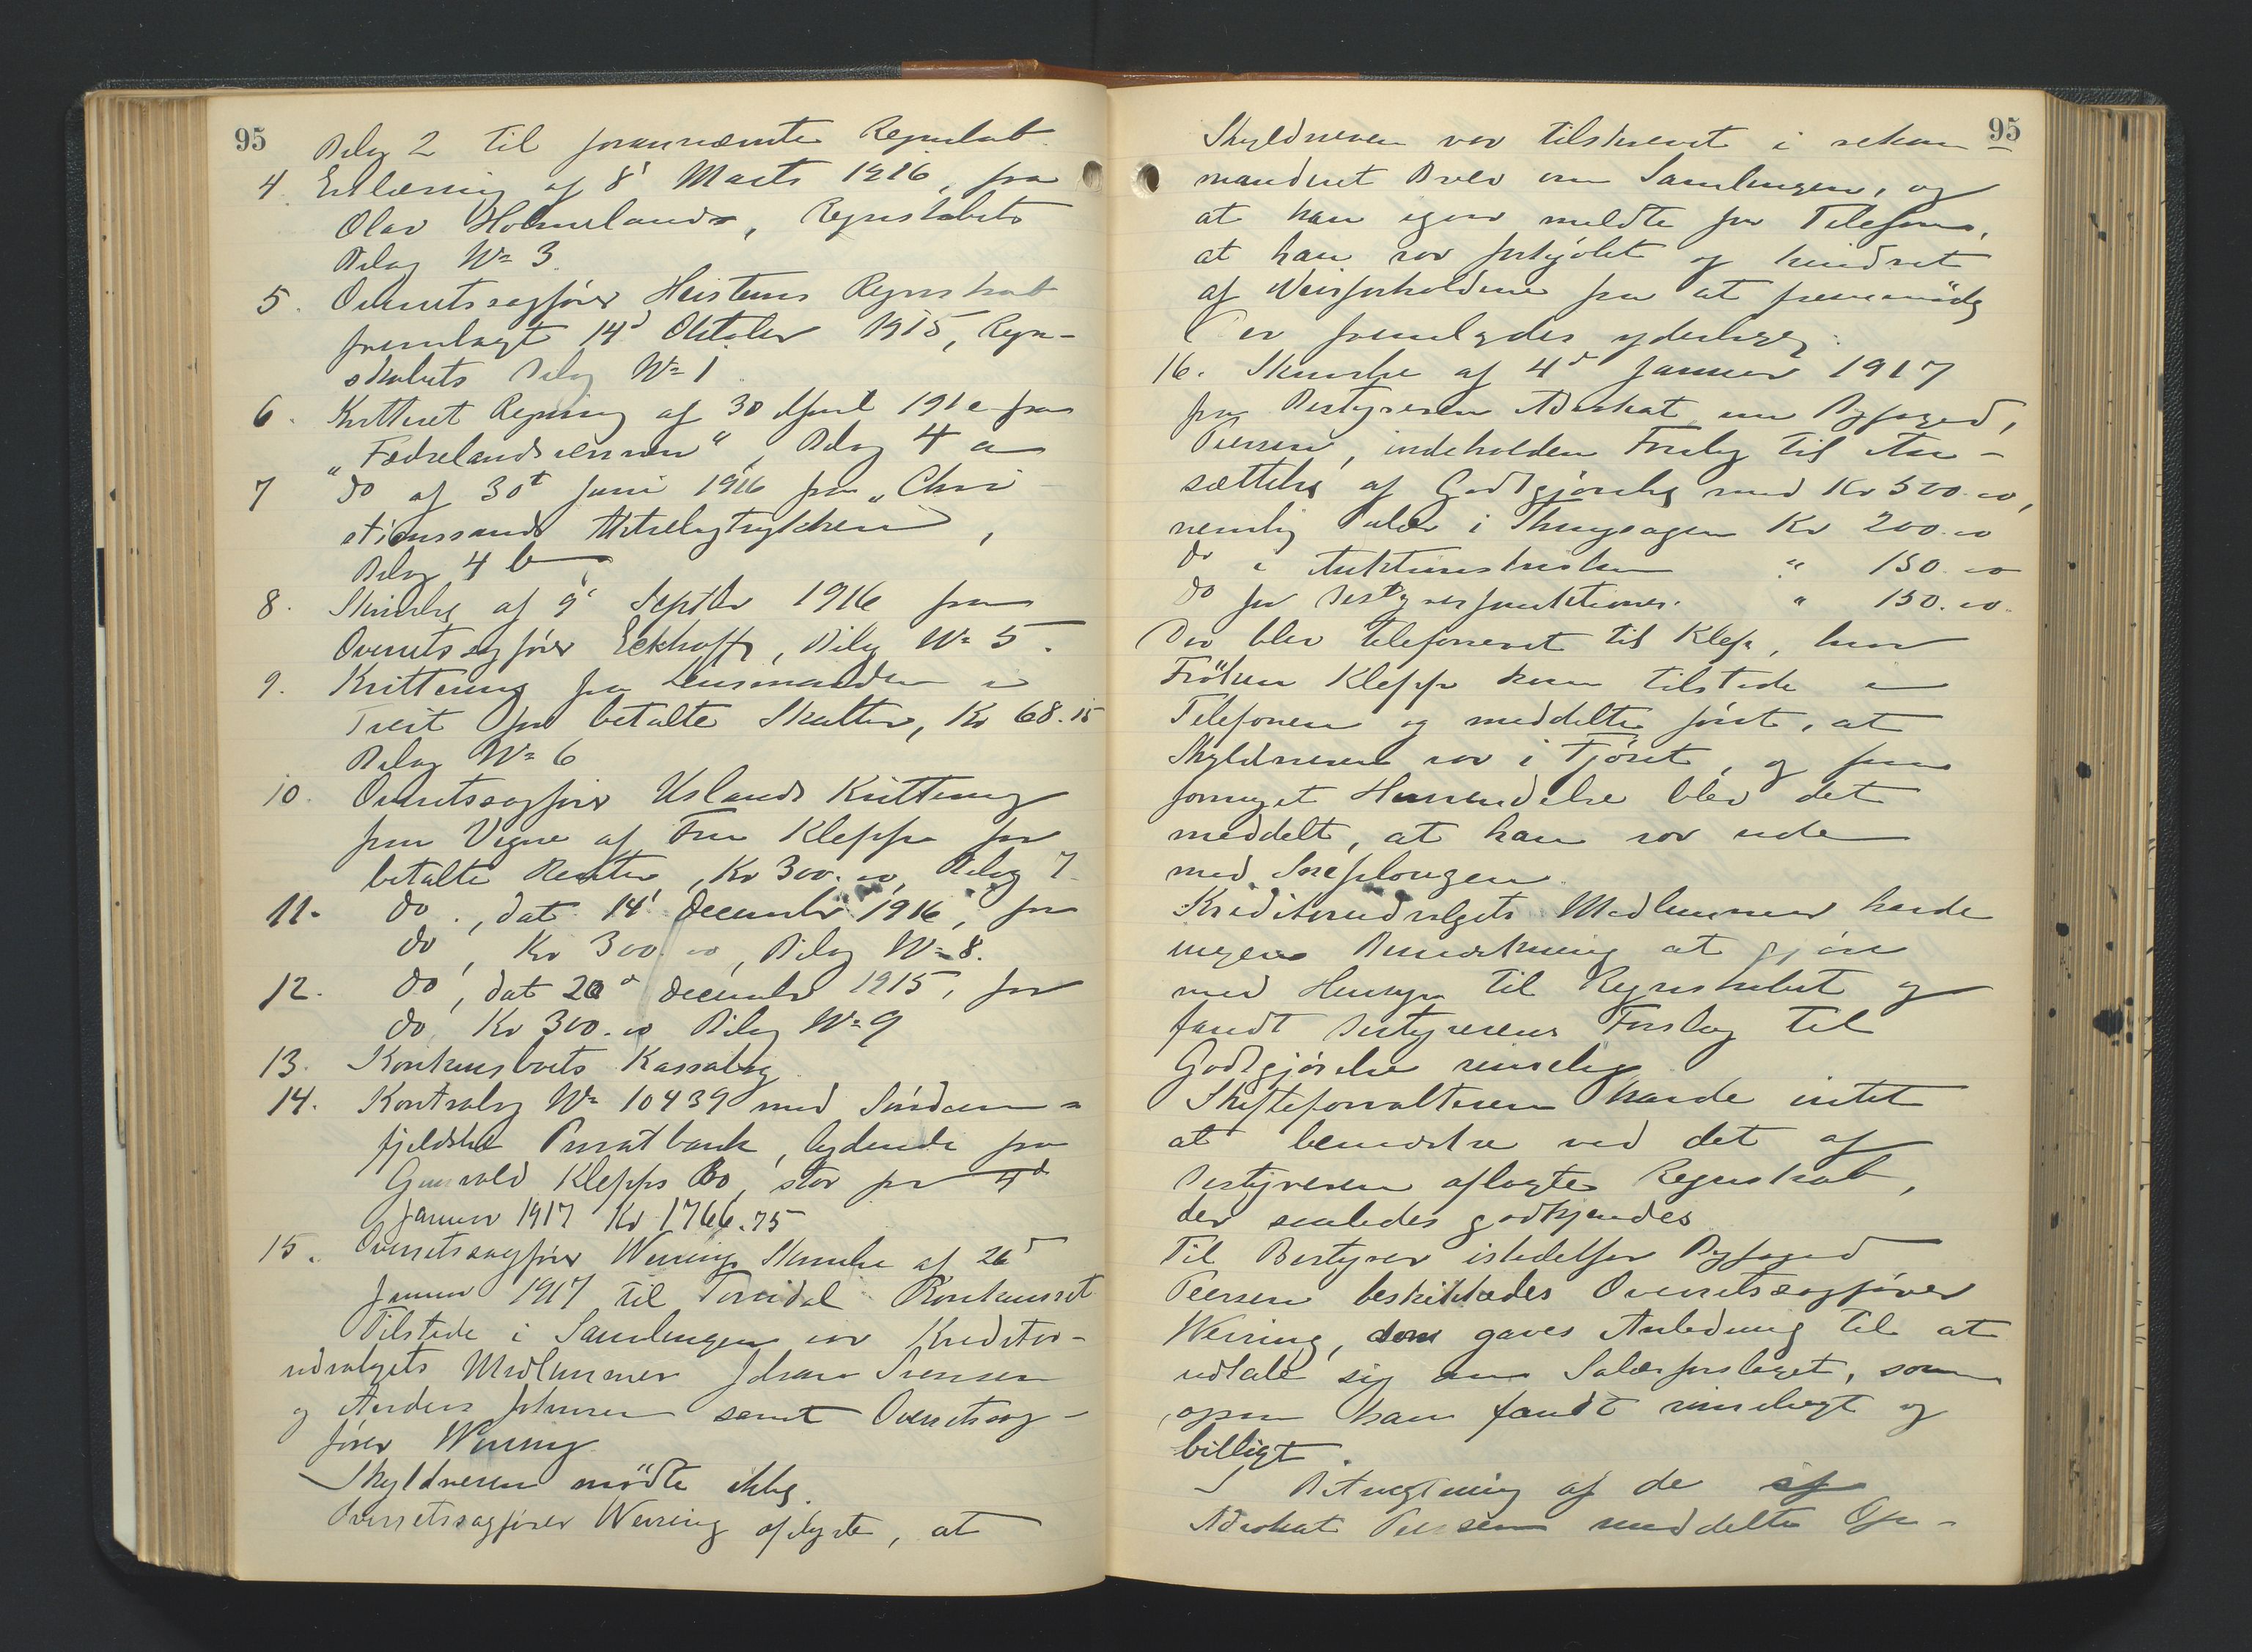 95
Bilag 2 til forannævnte Regnskab
4. Erklæring af 8' Marts 1916, fra
Olav Holmelands, Regnskabets
Bilag No 3.
5. Overretssagfører Heistens Regnskab
fremlagt 14d Oktober 1915, Regn-
skabets Bilag No 1.
6. Kvitteret Regning af 30 April 1916 fra
"Fædrelandsvennen", Bilag 4 a
7 do af 30t Juni 1916 fra "Chri-
stianssands Aktiebogtrykkeri",
Bilag 4 b
8. Skrivelse af 9' Septbr 1916 fra
Overretssagfører Eckhoff, Bilag No 5.
9. Kvittering fra Lensmanden i
Tveit for betalte Skatter, Kr 68.15
Bilag No 6
10. Overretssagfører Uslands Kvittering
paa Vegne af Fru Klepp for
betalte Renter, Kr 300.00, Bilag 7.
11. do., dat. 14' December 1916, for
do, Kr 300.00, Bilag No 8.
12. do, dat 20d December 1915, for
do, Kr 300.00 Bilag No 9
13. Konkursboets Kassabog.
14. Kontrabog No 10439 med Søndaen-
fjeldske Privatbank, lydende paa
Gunvald Klepps Bo, stor pr 4d
Januar 1917 Kr 1766.75
15. Overretssagfører Wersing Skrivelse af 26d
Januar 1917 til Torridal Konkursret
Tilstede i Samlingen var Kreditor-
udvalgets Medlemmer Johan Svensen
og Anders Johnsen samt Overretssag-
fører Wersing.
Skyldneren mødte ikke.
Overretssagfører Wersing oplyste, at
95
Skyldneren var tilskrevet i rekom-
manderet Brev om Samlingen, og
at han igaar meldte pr Telefon,
at han var forkjølet og hindret
af Veirforholdene fra at fremmøde
Der fremlagdes yderligere:
16. Skrivelse af 4d Januar 1917
fra Bestyreren Advokat, nu Byfoged,
Peersen, indeholdende Forslag til An-
sættelse af Godtgjørelse med Kr 500.00,
nemlig Salær i Tvangsagen Kr 200.00
do i Auktionsforretn " 150.00
do for Bestyrerfunktioner. " 150.00.
Der blev telefoneret til Klepp, hvor
Frøken Klepp kom tilstede i
Telefonen og meddelte først, at
Skyldneren var i Fjøset, og paa
fornyet Henvendelse blev det
meddelt, at han var ude
med Sneplougen.
Kreditorudvalgets Medlemmer havde
ingen Bemerkning at gjøre
med Hensyn til Regnskabet og
fandt Bestyrerens Forslag til
Godtgjørelse rimelig.
Skifteforvalteren havde intet
at bemerke ved det af
Bestyreren aflagte Regnskab,
der saaledes godkjendes
Til Bestyrer istedetfor Byfoged
Peersen beskikkedes Overretssagfører
Wersing, som gaves Anledning til at
udtale sig om Salærforslaget, som
ogsaa han fandt rimeligt og
billigt.
I Betragtning af de af
Advokat Peersen meddelte Op-